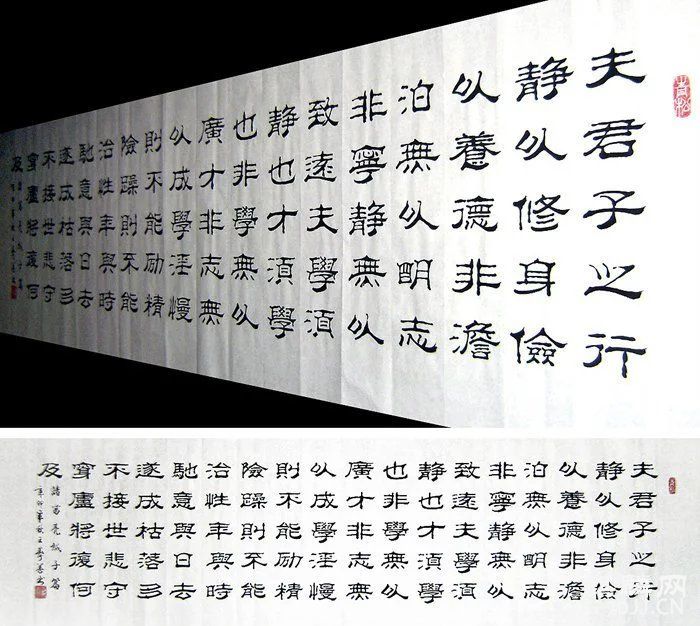 青松
夫君子之行
静以修身儉
以養德非澹
泊無以明志
非寧静無以
致遠夫學須
静也才須學
也非學無以
廣才非志無
以成學淫慢
則不能励精
險躁則不能
治性年與時
馳意與日去
遂成枯落多
不接世悲守
窮廬將復何
及
諸葛亮誡子篇
夫君子之行
静以修身儉
以養德非澹
泊無以明志
非寧静無以
致遠夫學須
静也才須學
也非學無以
廣才非志無
以成學淫慢
則不能励精
險躁則不能
治性年與時
馳意與日去
遂成枯落多
不接世悲守
窮廬將復何
及
諸葛亮誡子篇
辛卯年秋王